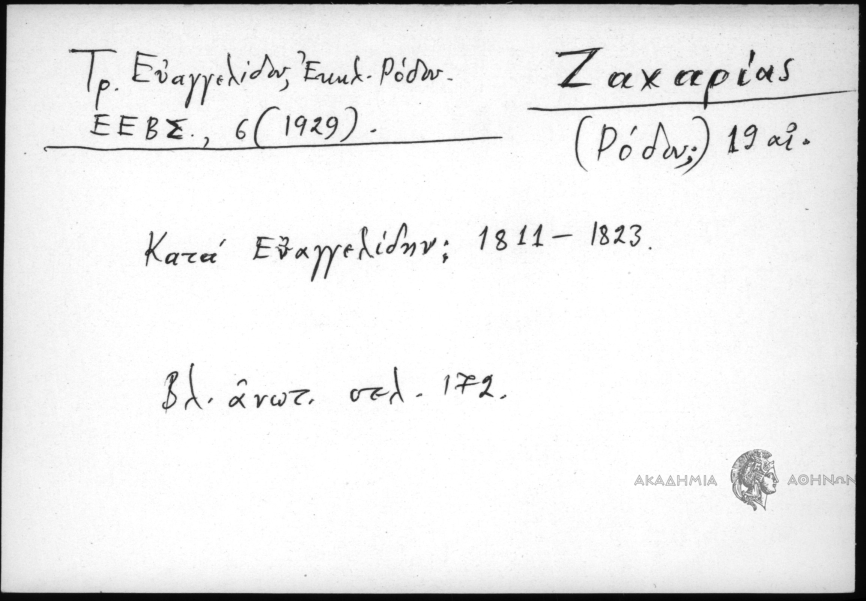 Τρ. Εὐαγγελίδου, Ἐκκλ. Ρόδου.
ΕΕΒΣ., 6 (1929).
Ζαχαρίας
(Ρόδου;) 19 αἰ.
Κατά Εὐαγγελίδην; 1811 – 1823.
Βλ. ἀνωτ. σελ. 172.
ΑΚΑΔΗΜΙΑ ΑΘΗΝΩΝ